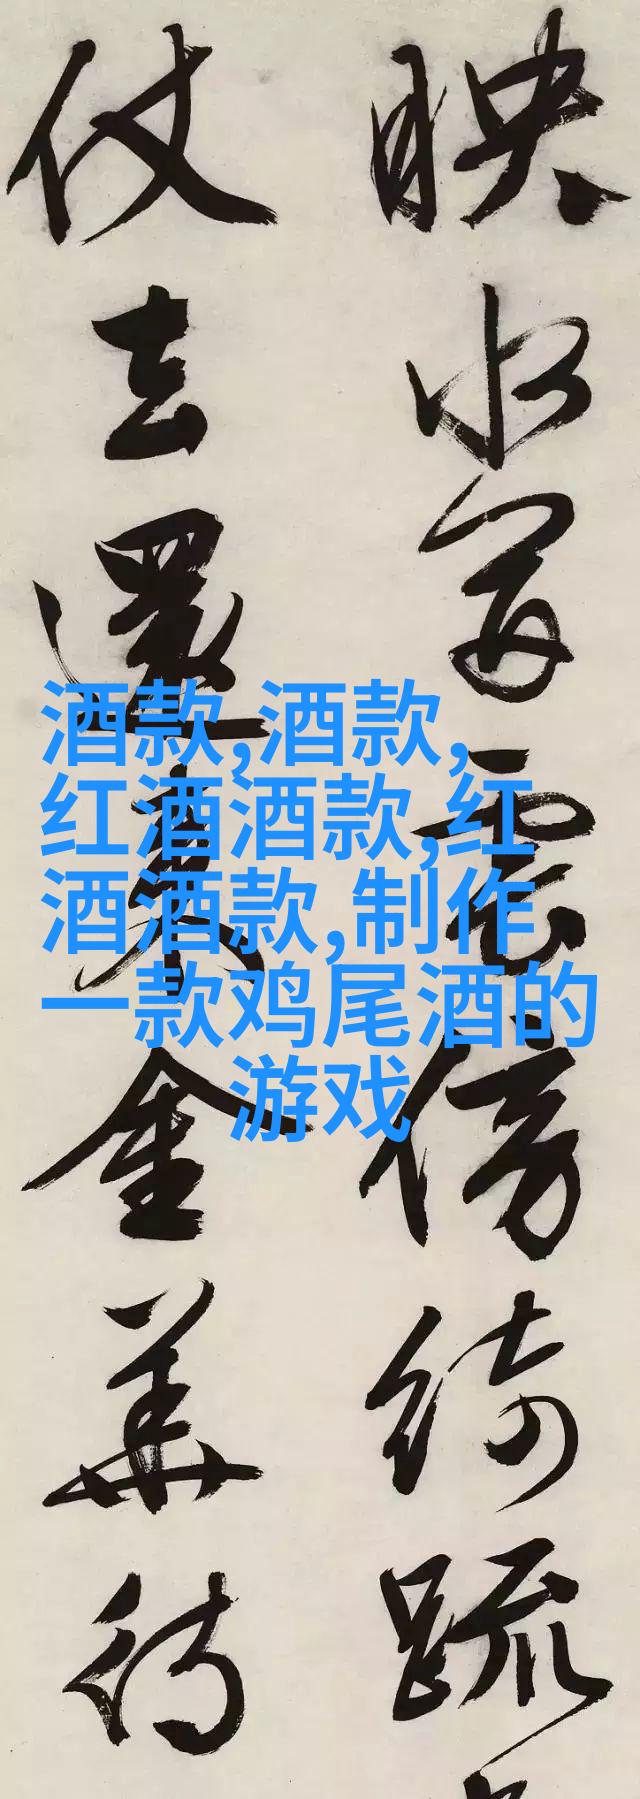 映水雲傍綺疏
仗去還來金華
酒款,酒款,
红酒酒款,红
酒酒款,制作
一款鸡尾酒的
游戏